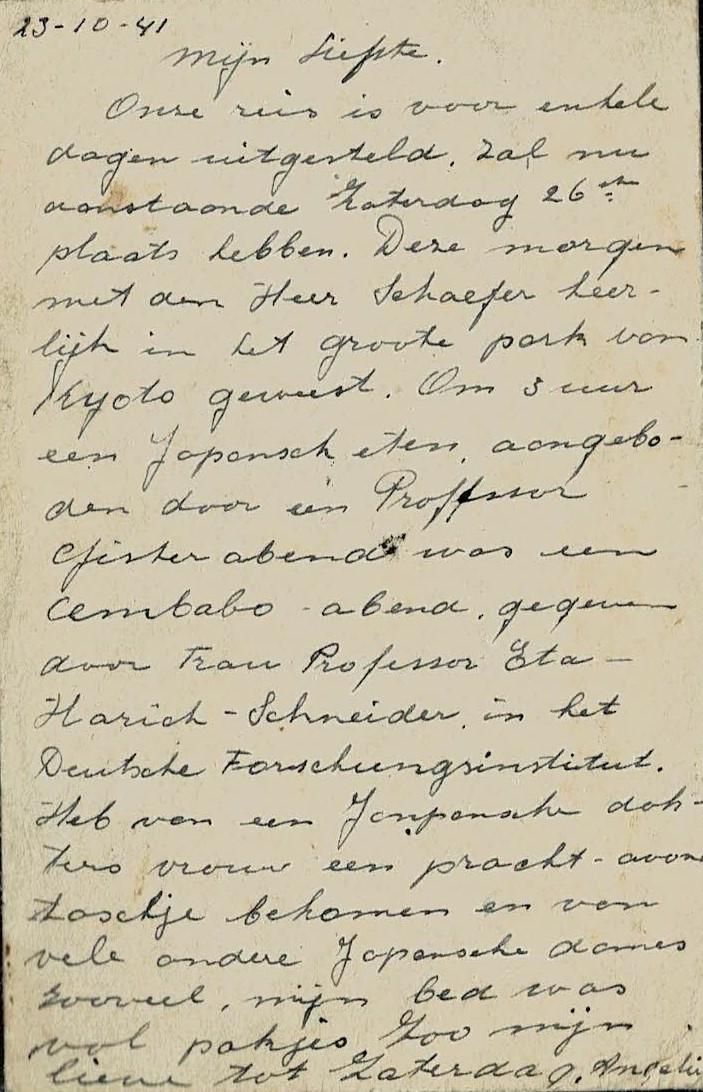 23-10-41
Mijn Liefste.
Onze reis is voor enkele
dagen uitgesteld, zal nu
aanstaande Zaterdag 26
plaats hebben. Deze morgen
met den Heer Schaefer heer-
lijk in het groote park van
Kyoto geweest. Om 5 uur
een Japansch eten, aangebo-
den door een Proffssor
Gister abend was een
Cembabo - abend, gegeven
door Frau Professor Eta -
Harich - Schneider, in het
Deutsche Forschungsinstitut.
Heb van een Janpansche dok-
ters vrouw een pracht - avond
taschje bekomen en van
vele andere Japansche dames
zooveel, mijn bed was
vol pakjes Zoo mijn
lieve tot Zaterdag.